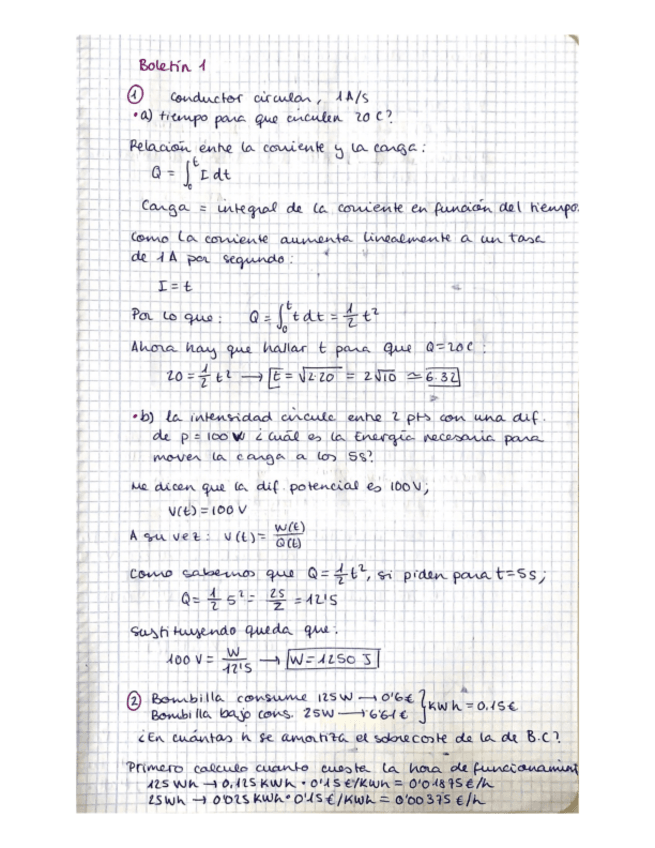 Boletín 1
① conductor circular, 1A/s
• a) tiempo para que circulen 20 C?
Relación entre la corriente y la carga:
Q = ∫₀ᵗ I dt
Carga = integral de la corriente en función del tiempo.
Como la corriente aumenta linealmente a un tasa
de 1A por segundo:
I = t
Por lo que: Q = ∫₀ᵗ t dt = 1/2 t²
Ahora hay que hallar t para que Q=20C:
20 = 1/2 t² → t = √2·20 = 2√10 ≃ 6.32
• b) la intensidad circule entre 2 pts con una dif.
de p = 100 V ¿cuál es la Energía necesaria para
mover la carga a los 5s?
Me dicen que la dif. potencial es 100V;
V(t) = 100 V
A su vez: V(t) = W(t)/Q(t)
Como sabemos que Q = 1/2 t², si piden para t=5s;
Q = 1/2 5² = 25/2 = 12'5
Sustituyendo queda que:
100 V = W/12'5 → W = 1250 J
② Bombilla consume 125W → 0'6€ } KWh = 0.15€
Bombilla bajo cons. 25W → 6'61€
¿En cuántas h se amortiza el sobrecoste de la de B.C?
Primero calculo cuanto cuesta la hora de funcionamient
125 Wh → 0,125 KWh · 0'15 €/KWh = 0'01875 €/h
25Wh → 0'025 KWh · 0'15 €/KWh = 0'00375 €/h